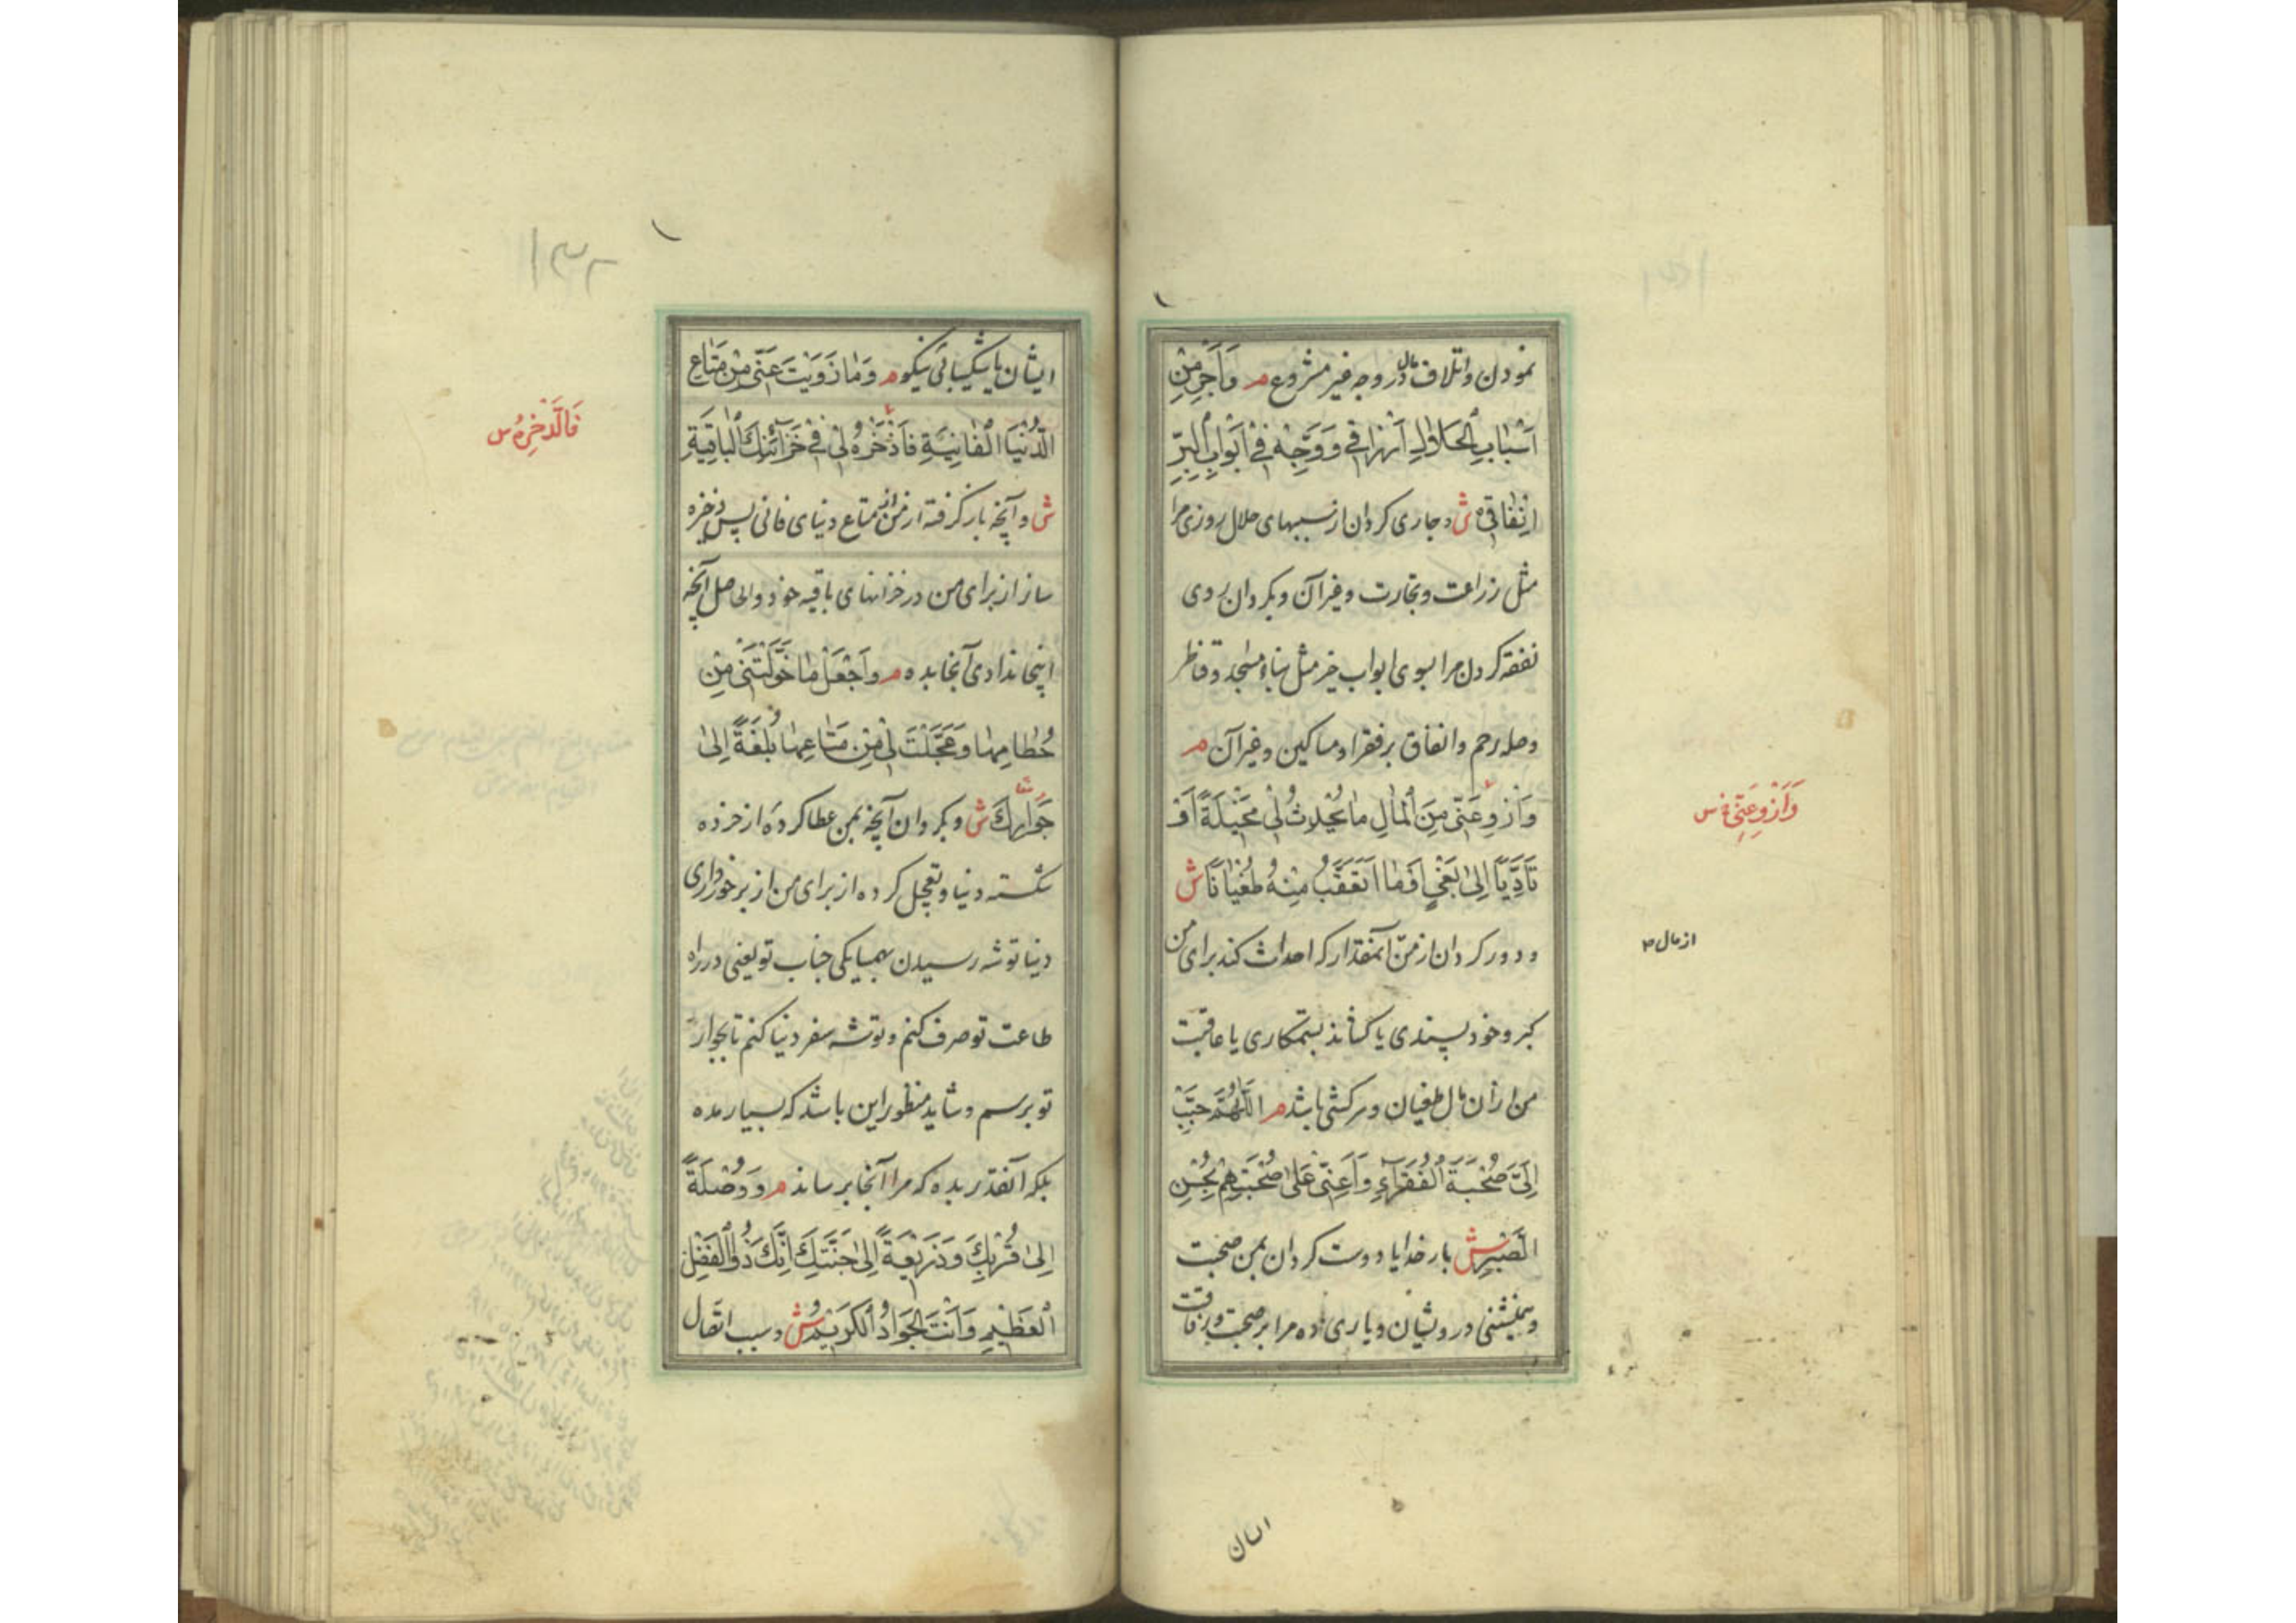 نمودن و اتلاف مال در وجه غیر مشروع م وَاَجْرِ مِنْ
اَسْبَابِ الْحَلَالِ اَرْزَاقِی وَوَجِّهْ فِی اَبْوَابِ الْبِرِّ
اِنْفَاقِی ش و جاری کردان از سببهای حلال روزی مرا
مثل زراعت و تجارت و غیر آن و بکردان روی
نفقه کردن مرا بسوی ابواب خیر مثل بناء مسجد و قناطر
وصله رحم و انفاق بر فقرا و مساکین و غیر آن م
وَاَزْوِ عَنِّی مِنَ الْمَالِ مَا یُحْدِثُ لِی مَخْیَلَةً اَوْ
تَاَدِّیًا اِلیٰ بَغْیٍ اَوْ مَا اَتَعَقَّبُ مِنْهُ طُغْیَانًا ش
و دور کردان از من آنمقدار که احداث کند برای من
کبر و خود پسندی یا کشاند بستمکاری یا عاقبت
من از آن مال طغیان و سرکشی باشد م اَللّٰهُمَّ حَبِّبْ
اِلَیَّ صُحْبَةَ الْفُقَرَآءِ وَاَعِنِّی عَلیٰ صُحْبَتِهِمْ بِحُسْنِ
الصَّبْرِ ش بار خدایا دوست کردان بمن صحبت
و همنشینی درویشان و یاری ده مرا بر صحبت و رفاقت
وَاَزْوِ عَنِّی س
از مال
ایشان
۱۳۲
ایشان با شکیبائی نیکو م وَمَا زَوَیْتَ عَنِّی مِنْ مَتَاعِ
الدُّنْیَا الْفَانِیَةِ فَاَذْخَرْهُ لِی فِی خَزَآئِنِكَ الْبَاقِیَةِ
ش و آنچه باز گرفته از من از متاع دنیای فانی پس ذخیره
ساز از برای من در خزانهای باقیه خود و الحاصل آنچه
اینجا ندادی آنجا بده م وَاَجْعَلْ مَا خَوَّلْتَنِی مِنْ
حُطَامِهَا وَعَجَّلْتَ لِی مِنْ مَتَاعِهَا بُلْغَةً اِلیٰ
جَوَارِكَ ش و بکردان آنچه بمن عطا کرده از خرده
شکسته دنیا و تعجیل کرده از برای من از برخورداری
دنیا توشه رسیدن بهمسایکی جناب تو یعنی در راه
طاعت تو صرف کنم و توشه سفر دنیا کنم تا بجوار
تو برسم و شاید منظور این باشد که بسیار مده
بلکه آنقدر بده که مرا آنجا برساند م وَوُصْلَةً
اِلیٰ قُرْبِكَ وَذَرِیعَةً اِلیٰ جَنَّتِكَ اِنَّكَ ذُو الْفَضْلِ
الْعَظِیمِ وَاَنْتَ الْجَوَادُ الْكَرِیمُ ش و سبب اتصال
فَالذَّخِرْهُ س